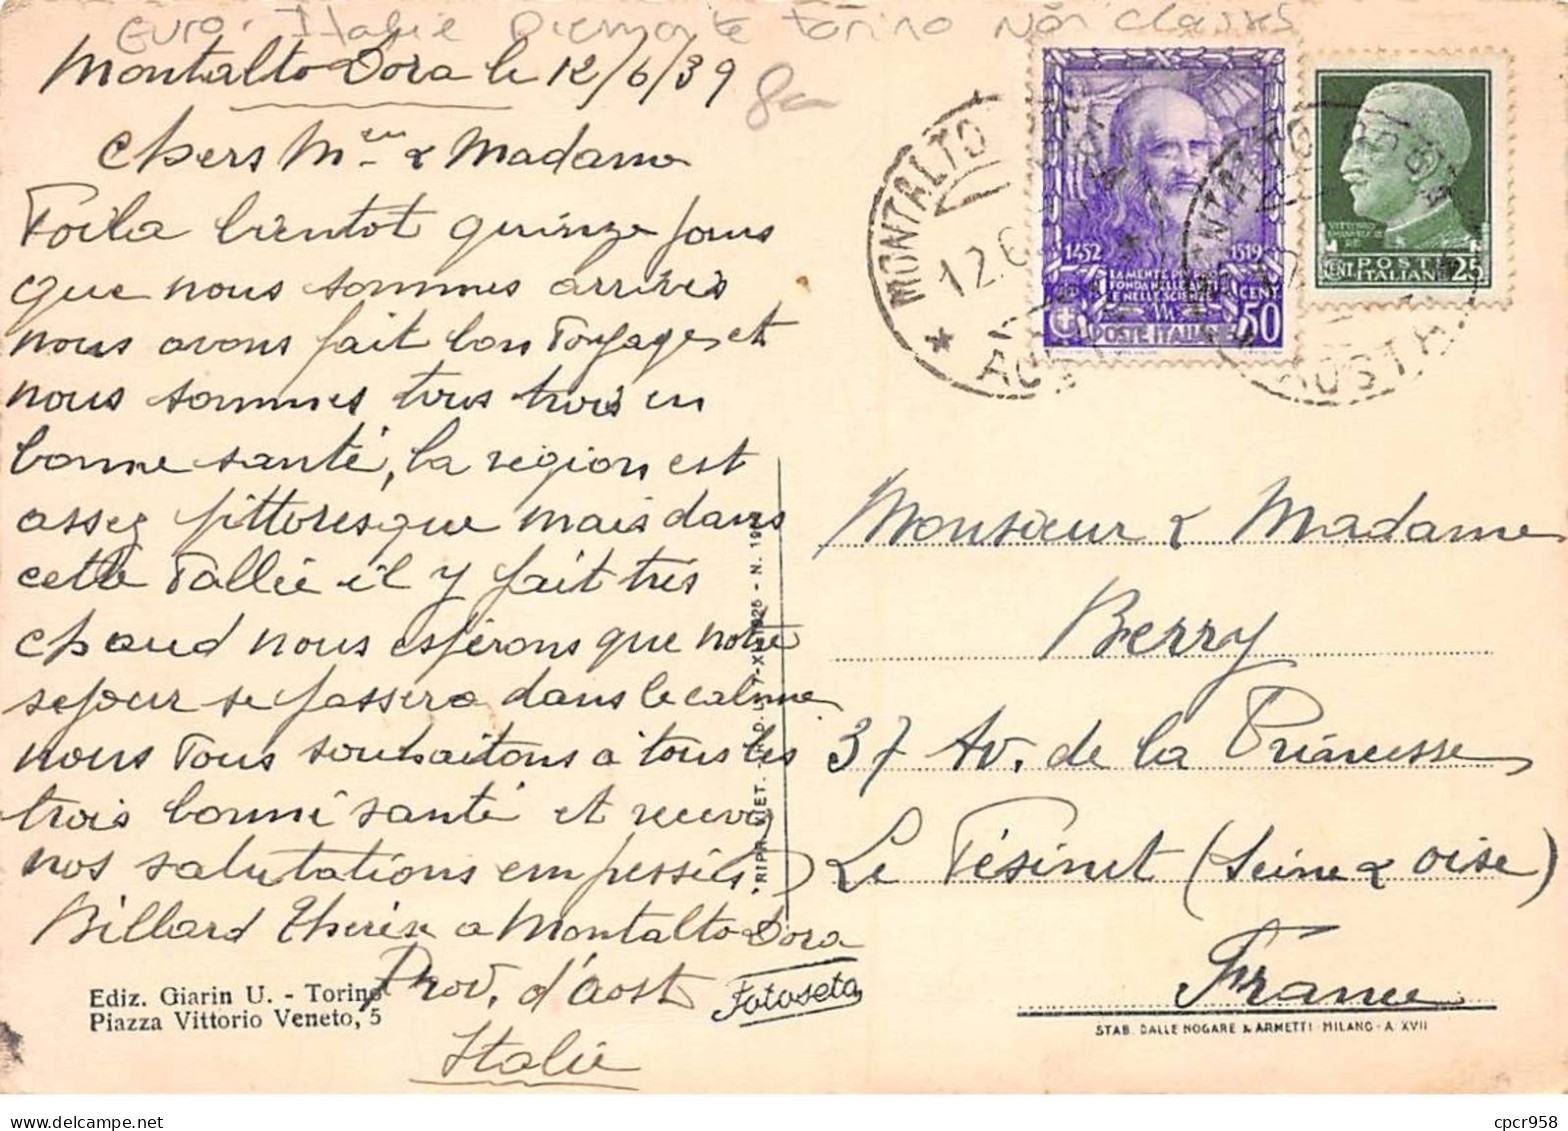 Euro. Italie Piemonte Torino Non classés
Montalto Dora le 12/6/39
8e
Chers Mr & Madame
Voila bientot quinze jours
que nous sommes arrivés
nous avons fait bon voyage et
nous sommes tous trois en
bonne santé, la region est
assez pittoresque mais dans
cette vallée il y fait très
chaud nous espérons que notre
sejour se passera dans le calme
nous vous souhaitons à tous les
trois bonne santé et recevez
nos salutations empressées
Billard Thérèse a Montalto Dora
Prov. d'aost
Italie
Ediz. Giarin U. - Torino
Piazza Vittorio Veneto, 5
Fotoseta
RIPR. VIET.
MONTALTO
12.6
AOSTA
1452
1519
LA MENTE
FONDA
E NELLE SCIENZE
CENT.
50
POSTE ITALIANE
CENT. POSTE ITALIANE 25
AOSTA
Monsieur & Madame
Berry
37 Av. de la Princesse
Le Vésinet (Seine & Oise)
France
STAB. DALLE NOGARE & ARMETTI - MILANO - A. XVII
cpcr958